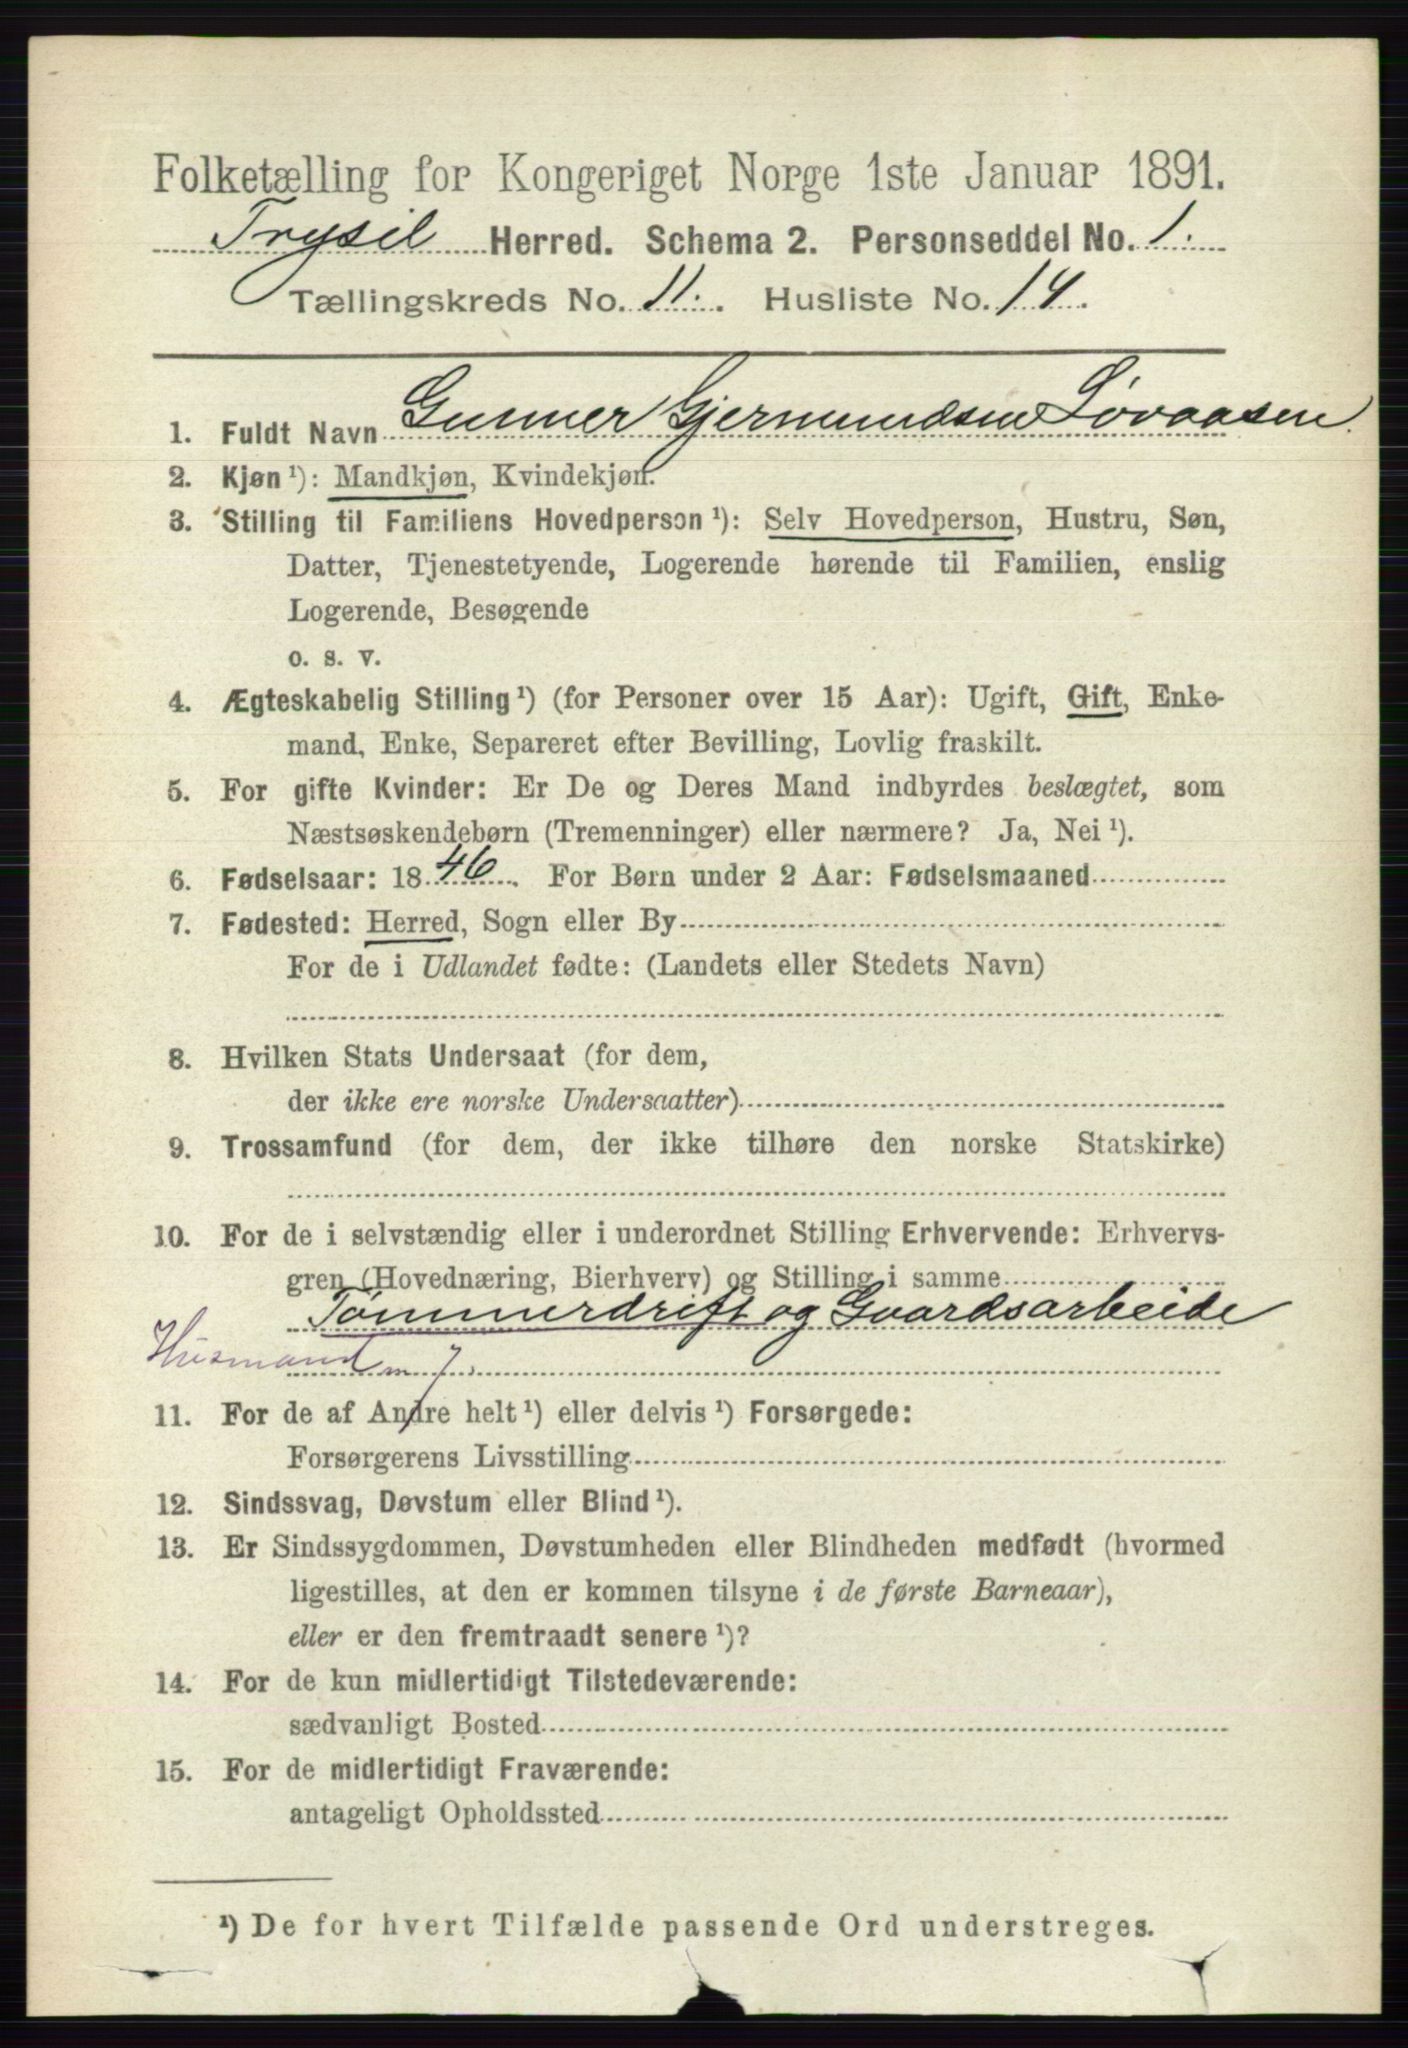 Folketælling for Kongeriget Norge 1ste Januar 1891.
Trysil Herred. Schema 2. Personseddel No. 1.
Tællingskreds No. 11. Husliste No. 14
1. Fuldt Navn Gunner Gjermundsen Løvaasen
2. Kjøn ¹): Mandkjøn, Kvindekjøn.
3. Stilling til Familiens Hovedperson ¹): Selv Hovedperson, Hustru, Søn,
Datter, Tjenestetyende, Logerende hørende til Familien, enslig
Logerende, Besøgende
o. s. v.
4. Ægteskabelig Stilling ¹) (for Personer over 15 Aar): Ugift, Gift, Enke-
mand, Enke, Separeret efter Bevilling, Lovlig fraskilt.
5. For gifte Kvinder: Er De og Deres Mand indbyrdes beslægtet, som
Næstsøskendebørn (Tremenninger) eller nærmere? Ja, Nei ¹).
6. Fødselsaar: 1846. For Børn under 2 Aar: Fødselsmaaned
7. Fødested: Herred, Sogn eller By
For de i Udlandet fødte: (Landets eller Stedets Navn)
8. Hvilken Stats Undersaat (for dem,
der ikke ere norske Undersaatter)
9. Trossamfund (for dem, der ikke tilhøre den norske Statskirke)
10. For de i selvstændig eller i underordnet Stilling Erhvervende: Erhvervs-
gren (Hovednæring, Bierhverv) og Stilling i samme
Tømmerdrift og Gaardsarbeide
Husmand m J
11. For de af Andre helt ¹) eller delvis ¹) Forsørgede:
Forsørgerens Livsstilling
12. Sindssvag, Døvstum eller Blind ¹).
13. Er Sindssygdommen, Døvstumheden eller Blindheden medfødt (hvormed
ligestilles, at den er kommen tilsyne i de første Barneaar),
eller er den fremtraadt senere ¹)?
14. For de kun midlertidigt Tilstedeværende:
sædvanligt Bosted
15. For de midlertidigt Fraværende:
antageligt Opholdssted
¹) De for hvert Tilfælde passende Ord understreges.